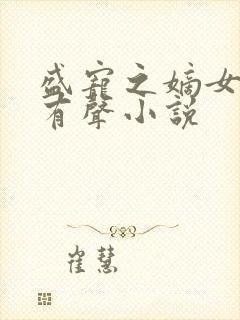 盛寵之嫡女
有聲小說
崔慧